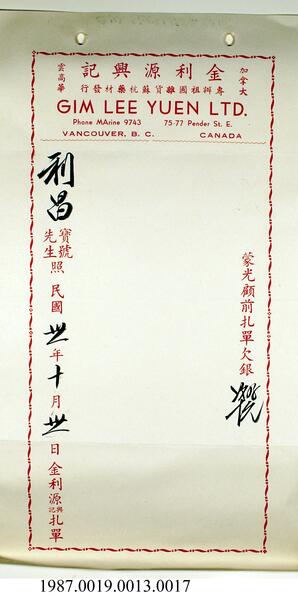 加拿大
金利源興記
雲高華
專辦祖國雜貨蘇杭藥材發行
GIM LEE YUEN LTD.
Phone MArine 9743 75-77 Pender St. E.
VANCOUVER, B. C. CANADA
蒙光顧前扎單欠銀
利昌寶號先生照 民國卅年十月卅日金利源興記扎單
1987.0019.0013.0017